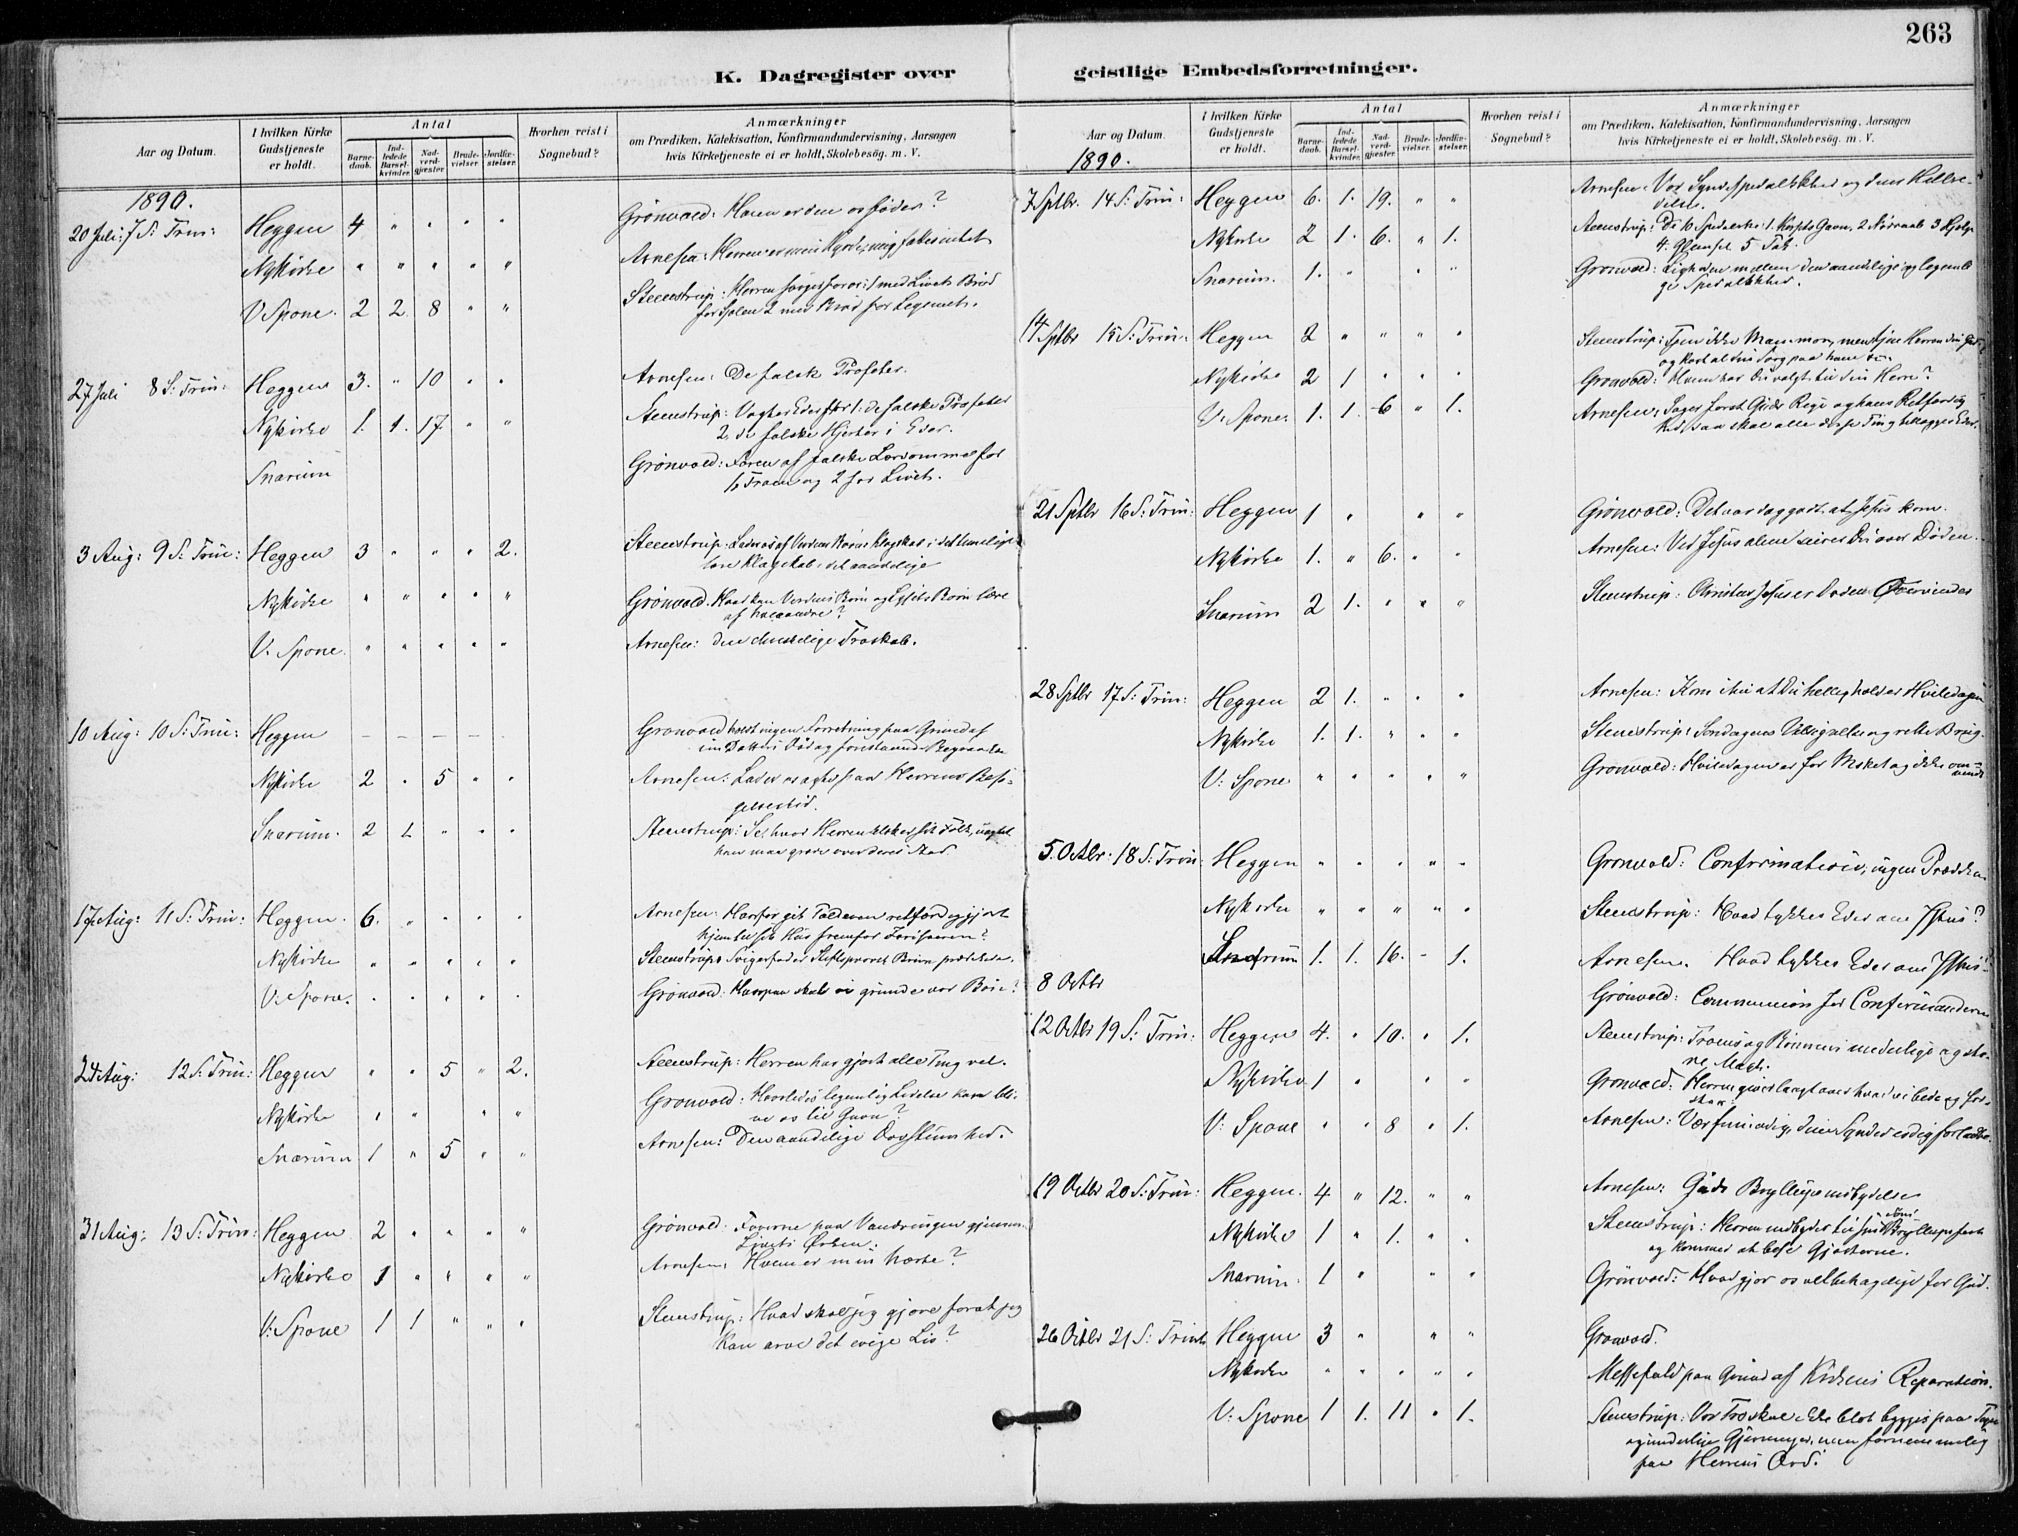 263
K. Dagregister over geistlige Embedsforretninger.
Aar og Datum.
I hvilken Kirke Gudstjeneste er holdt.
Antal
Barne-daab.
Ind-ledede Barsel-kvinder.
Nad-verd-gjæster.
Brude-vielser.
Jordfæ-stelser.
Hvorhen reist i Sognebud?
Anmærkninger
om Prædiken, Katekisation, Konfirmandundervisning, Aarsagen
hvis Kirketjeneste ei er holdt, Skolebesøg. m. V.
1890.
20 Juli: 7 S: Trin: Heggen 4 " " " " Grönvold: Hvem er den os föder?
Nykirke " " " " " Arnesen: Herren er min Hyrde, mig fattes intet
V. Spone. 2 2 8 " " Steenstrup: Herren sörger for os: 1 med Livets Bröd
for Sjelen 2 med Bröd for Legemet.
27 Juli 8 S: Trin: Heggen 3. " 10 " " Arnesen: De falske Profeter.
Nykirke 1. 1. 17. " " Steenstrup: Vogter Eder for 1: de falske Profeter
2, de falske Hjerter i Eder.
Snarum Grönvold: Faren af falske Lærdomme for
1, Troen og 2 for Livet.
3 Aug: 9 S: Trin: Heggen 3 " " " 2. Steenstrup: Lader os af Verdens Börns Klogskab i det timelige
lære Klogskab i det aandelige
Nykirke " " " " " Grönvold. Hvad kan Verdens Börn og Lysets Börn lære
af hverandre?
V. Spone. " " " " " Arnesen: Den christelige Troskab.
10 Aug: 10 S: Trin: Heggen – – – – Grönvold holdt ingen Forretning paa Grund af
sin Datters Död og forestaaende Begravelse
Nykirke 2 " 5 " " Arnesen: Lader os agte paa Herrens Besö-
gelsestid.
Snarum. 2 1. " " " Steenstrup: Se, hvor Herren elsker sit Folk,
han maa græde over deres Stad.
17 Aug: 11 S: Trin: Heggen. 6. " " " " Arnesen: Hvorfor gik Tolderen retfærdiggjort
hjem til sit Hus fremfor Farisæeren?
Nykirke " " " " " Steenstrups Svigerfader Stiftsprovst Bruun prædikede.
V: Spone. " " " " " Grönvold: Hvorpaa skal vi grunde vor Bön?
24 Aug: 12 S: Trin: Heggen " " 5 " 2. Steenstrup: Herren har gjort alle Ting vel.
Nykirke " " " " Grönvold: Hvorledes legemlig Lidelse kan bli-
ve os til Gavn?
Snarum 1 " 5 " " Arnesen: Den aandelige Dovstumhed.
31 Aug: 13 S: Trin: Heggen 2 " " " " Grönvold. Farerne paa Vandringen gjennem
Livets Örken.
Nykirke 1 " " " " Arnesen: Hvem er min Næste?
V: Spone 1 1 " " " Steenstrup: Hvad skal jeg gjöre forat jeg
kan arve det evige Liv?
Aar og Datum.
I hvilken Kirke Gudstjeneste er holdt.
Antal
Barne-daab.
Ind-ledede Barsel-kvinder.
Nad-verd-gjæster.
Brude-vielser.
Jordfæ-stelser.
Hvorhen reist i Sognebud?
Anmærkninger
om Prædiken, Katekisation, Konfirmandundervisning, Aarsagen
hvis Kirketjeneste ei er holdt, Skolebesøg. m. V.
1890.
7 Sptbr. 14 S: Trin: Heggen 6. 1. 19. " " Arnesen: Vor Synds Spedalskhed og dens Helbre-
delse.
Nykirke 2 1. 6. " 1. Steenstrup: De 10 Spedalske: 1. Korsets Gavn, 2 Nödraab 3 Hjelp
4. Glemsel 5 Tak.
Snarum. 1. " " " Grönvold: Ligheden mellem den aandelige og legemli-
ge Spedalskhed.
14 Sptbr 15 S: Trin: Heggen 2 " " " " Steenstrup: Tjen ikke Mammon, men tjen Herren din Gud
og kast al din Sorg paa ham
Nykirke 2 1 " " " Grönvold: Hvem har Du valgt til din Herre?
V. Spone. 1. 1. 6 " 1. Arnesen: Söger först Guds Rige og hans Retfærdig
hed, saa skal alle disse Ting tillægges Eder.
21 Sptbr 16 S: Trin: Heggen 1 " " " Grönvold: Det var dog godt at Jesus kom.
Nykirke 1. " 6. " " Arnesen: Ved Jesus alene seirer Du over Döden.
Snarum 2 1. " " " Steenstrup: Christus Jesus er Dödens Overvinder
28 Sptbr 17 S: Trin: Heggen 2 1. " " " Arnesen: Kom ihu at Du helligholder Hviledagen
Nykirke 1. 1. " " " Steenstrup: Söndagens Velsignelse og rette Brug.
V: Spone " " " " " Grönvold: Hviledagen er for Msket og ikke om-
vendt
5. Octbr: 18 S: Trin Heggen " " " " " Grönvold: Confirmation, ingen Prædiken
Nykirke " " " " " Steenstrup: Hvad tykkes Eder om Xstus?
Snarum 1. 1. 16. " 1. Arnesen. Hvad tykkes Eder om Xstus?
8 Octbr Grönvold: Communion for Confirmanderne
12 Octbr 19 S: Trin: Heggen 4. " 10. " 1. Steenstrup: Troens og Bönnens underlige og sto-
re Magt.
Nykirke 1 " " " Grönvold: Herren giver langt over hvad vi bede og for-
staa
V: Spone " " 8 " 1. Arnesen: Vær frimodig, dine Synder er dig forladte.
19 Octbr 20 S: Trin: Heggen. 4 " 12. " " Arnesen: Guds Bryllups indbydelse
Nykirke 1 " 1. " " Steenstrup: Herren indbyder til sin Söns Bryllupsfest
og kommer at bese Gjæsterne.
Snarum. 1 " " " Grönvold: Hvad gjör os velbehagelige for Gud.
26 Octbr 21 S: Trinit. Heggen 3 " " " Grönvold.
Nykirke " " " " " Messefald paa Grund af Kirkens Reparation.
V: Spone 1 1. 11 " 1. Steenstrup: Vor Tro skal ikke blot bygges paa Tegn
og underlige Gjerninger, men fornemmelig
paa Herrens Ord.